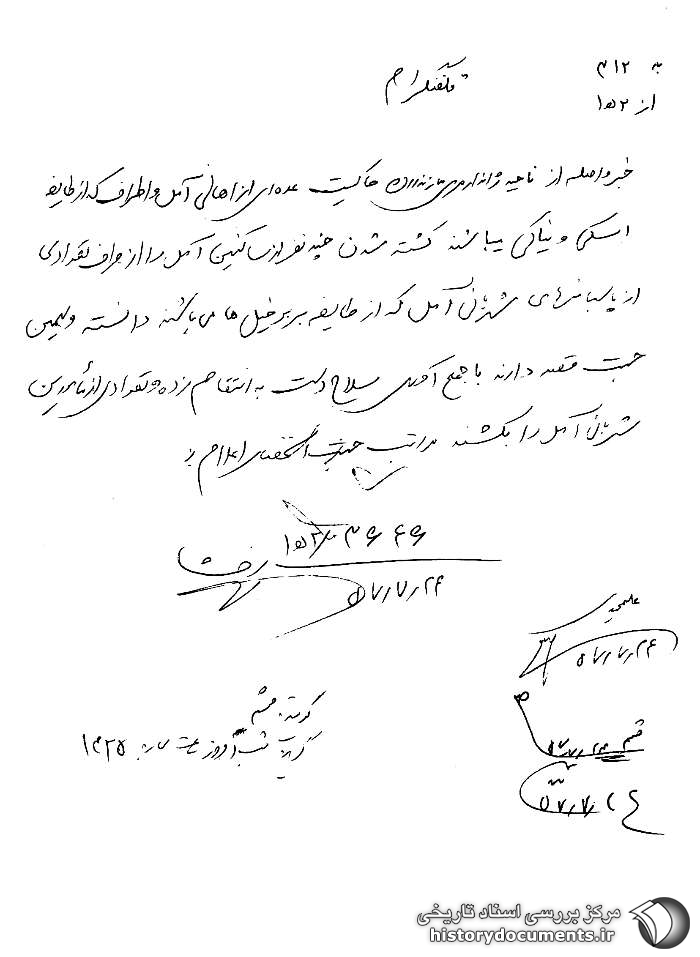 به ۳۱۲
از ۱ه۲
تلفنگرام
خبر واصله از ناحیه ژاندارمری مازندران حاکیست عده‌ای از اهالی آمل و اطراف که از طایفه
اسکی و نیاکی میباشند کشته شدن چند نفر از ساکنین آمل را از طرف تعدادی
از پاسبانهای شهربانی آمل که از طایفه بربرخیل ها می باشند دانسته و بهمین
جهت قصد دارند با جمع آوری سلاح دست به انتقام زده و تعدادی از مأمورین
شهربانی آمل را بکشند مراتب جهت استحضار اعلام
۱ه۲/ ۳۶۴۶
۵۷/۷/۲۴
علیمحمدی
۵۷/۷/۲۴
۵۷/۷/۲۴
۵۷/۷/۲۴
گوینده:
گیرنده شب امروز ساعت
مرکز بررسی اسناد تاریخی
historydocuments.ir